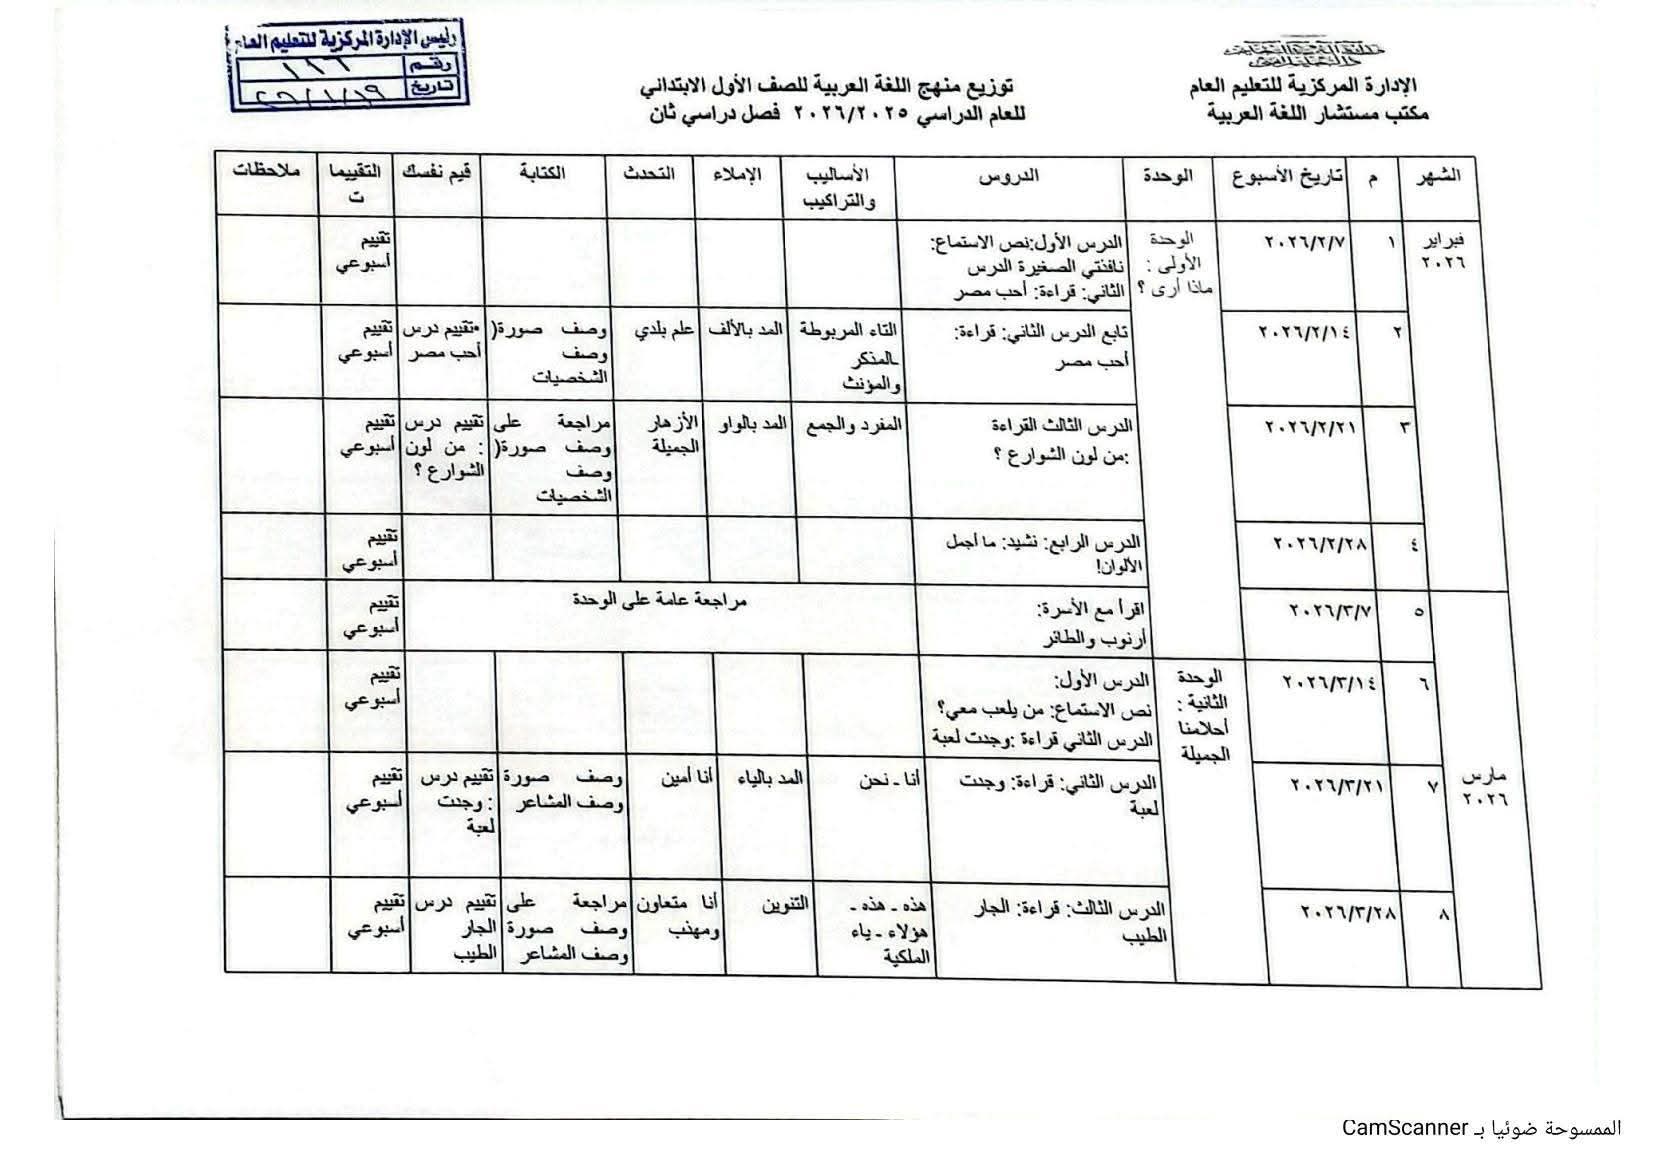 رئيس الإدارة المركزية للتعليم العام
رقم
تاريخ
الإدارة المركزية للتعليم العام
مكتب مستشار اللغة العربية
توزيع منهج اللغة العربية للصف الأول الابتدائي
للعام الدراسي ٢٠٢٦/٢٠٢٥ فصل دراسي ثان
الشهر م تاريخ الأسبوع الوحدة الدروس الأساليب والتراكيب الإملاء التحدث الكتابة قيم نفسك التقييمات ملاحظات
فبراير ٢٠٢٦
١ ٢٠٢٦/٢/٧
الوحدة
الأولى :
ماذا أرى ؟
الدرس الأول:نص الاستماع:
نافذتي الصغيرة الدرس
الثاني: قراءة: أحب مصر
تقييم
أسبوعي
٢ ٢٠٢٦/٢/١٤
تابع الدرس الثاني: قراءة:
أحب مصر
التاء المربوطة
ـالمذكر
والمؤنث
المد بالألف
علم بلدي
وصف صورة(
وصف
الشخصيات
•تقييم درس
أحب مصر
تقييم
أسبوعي
٣ ٢٠٢٦/٢/٢١
الدرس الثالث القراءة
:من لون الشوارع ؟
المفرد والجمع
المد بالواو
الأزهار
الجميلة
مراجعة على
وصف صورة(
وصف
الشخصيات
تقييم درس
: من لون
الشوارع ؟
تقييم
أسبوعي
٤ ٢٠٢٦/٢/٢٨
الدرس الرابع: نشيد: ما أجمل
الألوان!
تقييم
أسبوعي
مارس
٢٠٢٦
٥ ٢٠٢٦/٣/٧
اقرأ مع الأسرة:
أرنوب والطائر
مراجعة عامة على الوحدة
تقييم
أسبوعي
٦ ٢٠٢٦/٣/١٤
الوحدة
الثانية :
أحلامنا
الجميلة
الدرس الأول:
نص الاستماع: من يلعب معي؟
الدرس الثاني قراءة :وجدت لعبة
تقييم
أسبوعي
٧ ٢٠٢٦/٣/٢١
الدرس الثاني: قراءة: وجدت
لعبة
أنا ـ نحن
المد بالياء
أنا أمين
وصف صورة
وصف المشاعر
تقييم درس
: وجدت
لعبة
تقييم
أسبوعي
٨ ٢٠٢٦/٣/٢٨
الدرس الثالث: قراءة: الجار
الطيب
هذه ـ هذه ـ
هؤلاء ـ ياء
الملكية
التنوين
أنا متعاون
ومهذب
مراجعة على
وصف صورة
وصف المشاعر
تقييم درس
الجار
الطيب
تقييم
أسبوعي
الممسوحة ضوئيا بـ CamScanner